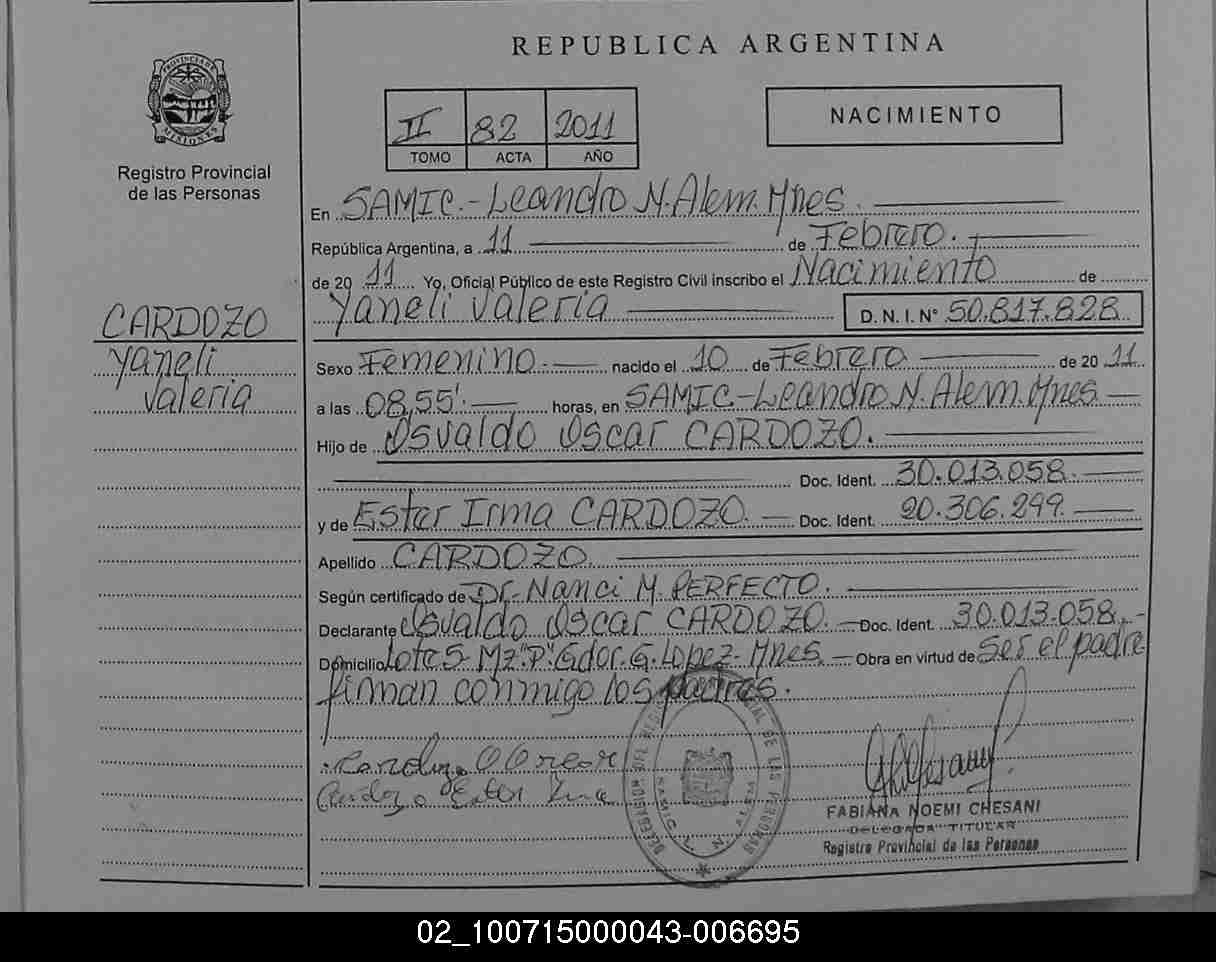 REPUBLICA ARGENTINA
PROVINCIA DE MISIONES
Registro Provincial
de las Personas
II 82 2011
TOMO ACTA AÑO
NACIMIENTO
En SAMIC.- Leandro N. Alem. Mnes.
República Argentina, a 11 de Febrero.
de 20 11 Yo, Oficial Público de este Registro Civil inscribo el Nacimiento de
Yaneli Valeria D. N. I. N° 50.817.828
CARDOZO
Yaneli
Valeria
Sexo Femenino.- nacido el 10 de Febrero de 20 11
a las 08,55'. horas, en SAMIC-Leandro N. Alem. Mnes.
Hijo de Osvaldo Oscar CARDOZO.
Doc. Ident. 30.013.058.
y de Ester Irma CARDOZO. Doc. Ident. 20.306.299.
Apellido CARDOZO.
Según certificado de Dr. Nanci M. PERFECTO.
Declarante Osvaldo Oscar CARDOZO. Doc. Ident. 30.013.058.-
Domicilio Lote 5- Mz "P" Gdor. G. Lopez- Mnes. Obra en virtud de ser el padre
firman conmigo los padres.
Cardozo
Cardozo Ester
FABIANA NOEMI CHESANI
DELEGADA TITULAR
Registro Provincial de las Personas
DELEGACION DE LAS PERSONAS
SAMIC L. N. ALEM
02_100715000043-006695